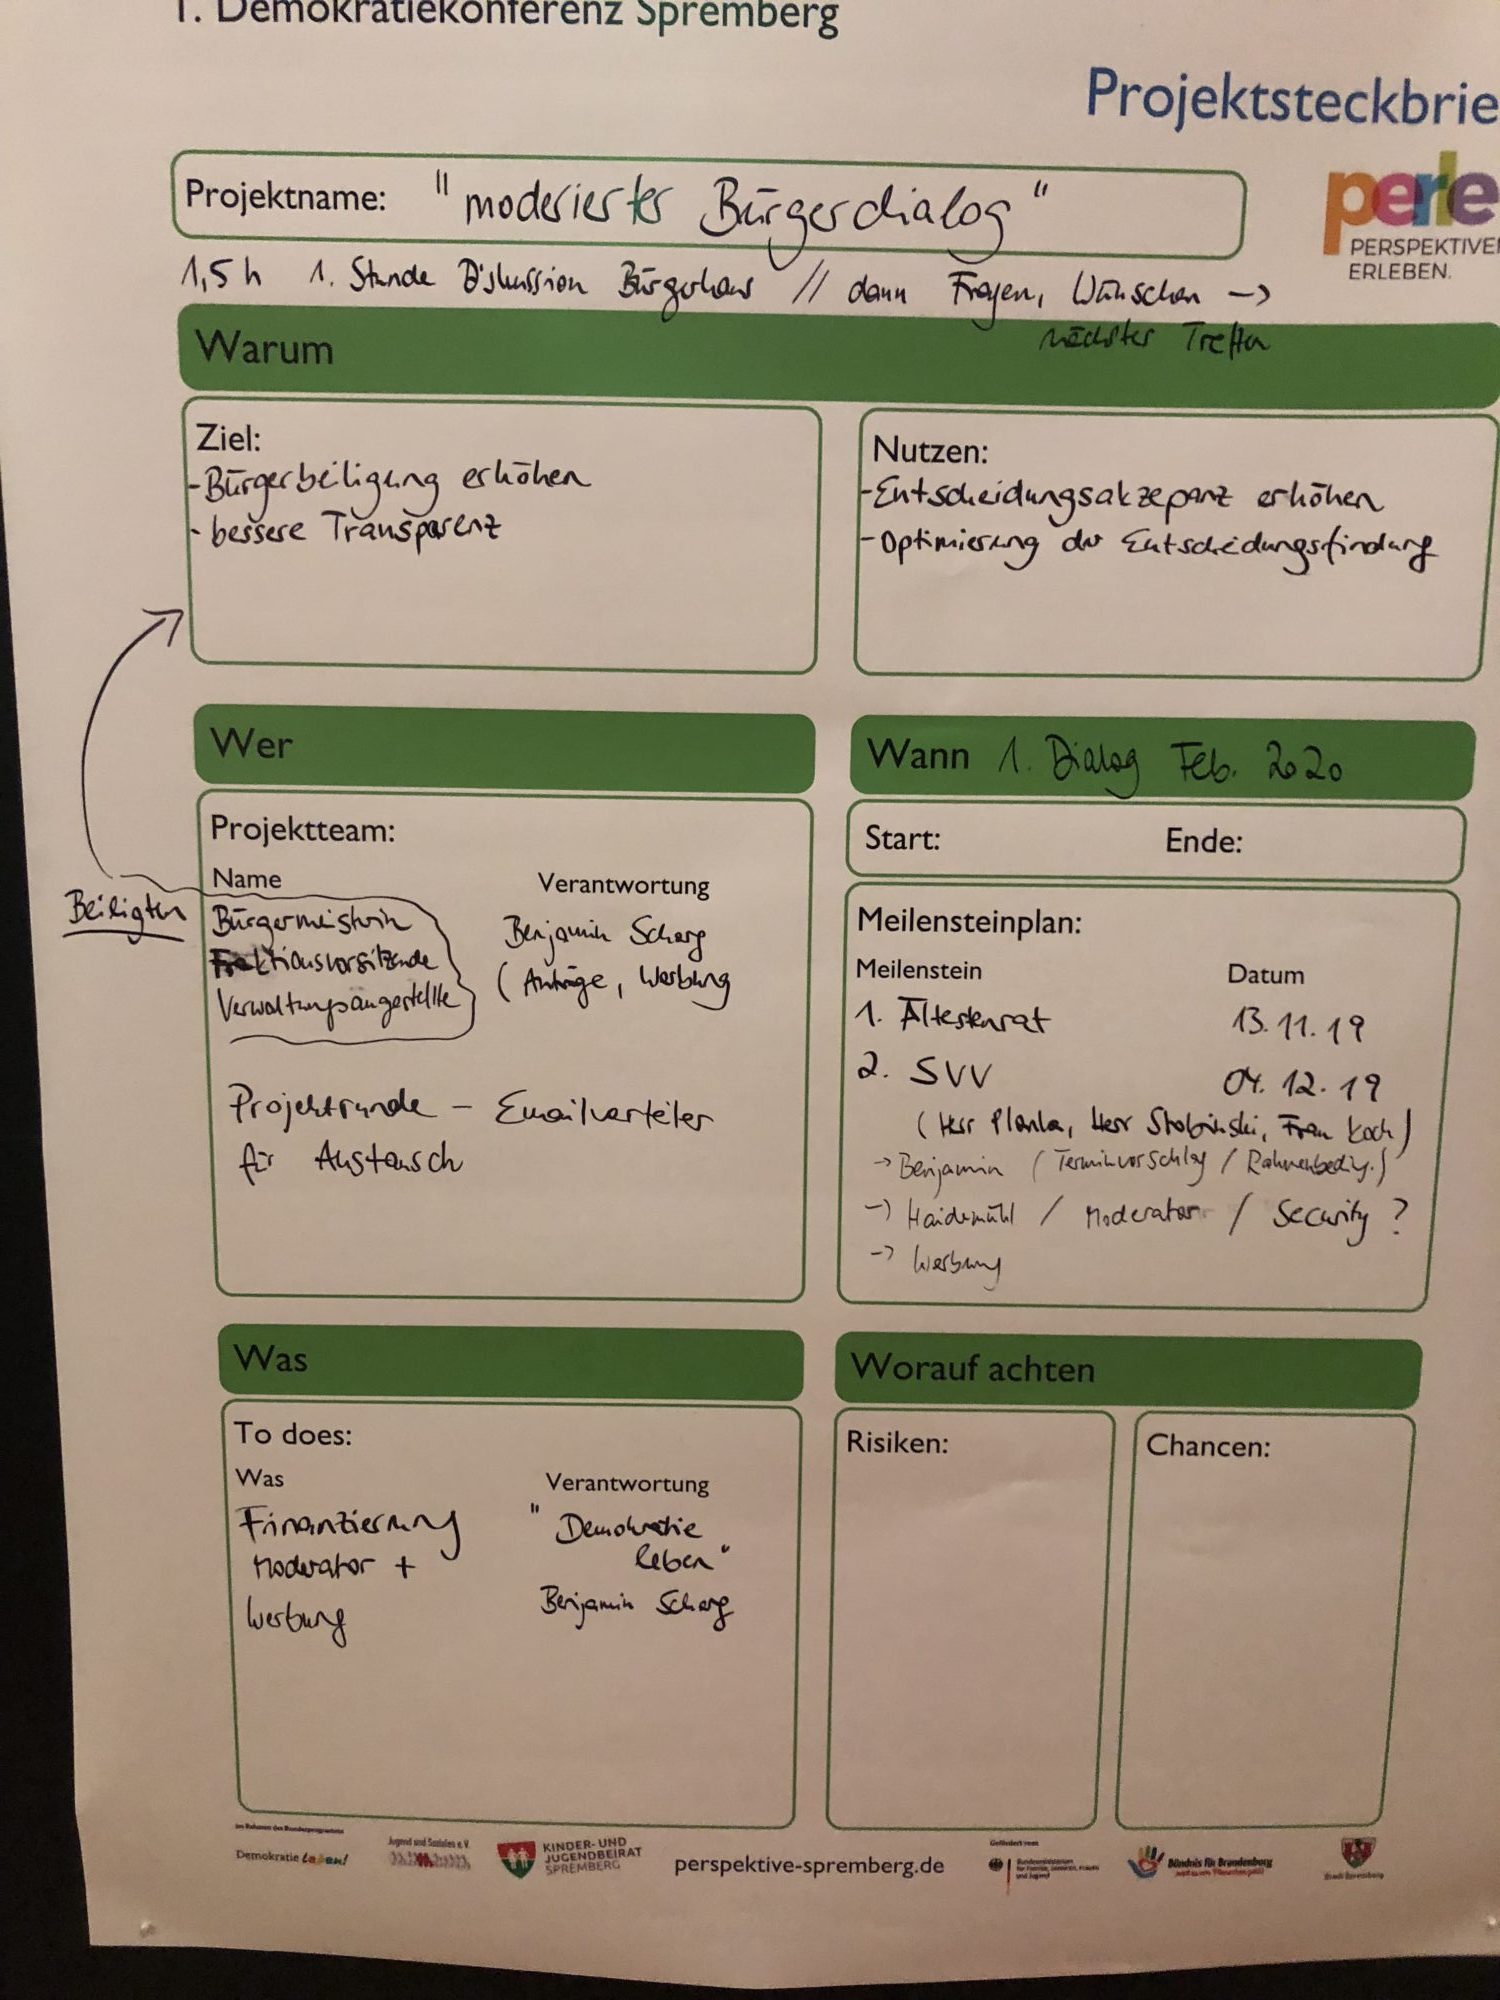 1. Demokratiekonferenz Spremberg
Projektsteckbrie
Projektname: "moderierter Bürgerdialog"
perle
PERSPEKTIVEN
ERLEBEN.
1,5 h 1. Stunde Diskussion Bürgerhaus // dann Fragen, Wünschen ->
nächster Treffen
Warum
Ziel:
- Bürgerbeiligung erhöhen
- bessere Transparenz
Nutzen:
- Entscheidungsakzepanz erhöhen
- Optimierung der Entscheidungsfindung
Wer
Projektteam:
Name Verantwortung
Beiligten
Bürgermeisterin
Fraktionsvorsitzende
Verwaltungsangestellte
Benjamin Scharg
(Anträge, Werbung
Projektrunde - Emailverteiler
für Austausch
Wann 1. Dialog Feb. 2020
Start: Ende:
Meilensteinplan:
Meilenstein Datum
1. Ältestenrat 13.11.19
2. SVV 04.12.19
(Herr Herr Frau Koch)
-> Benjamin (Terminvorschlag / Rahmenbedig.)
-> Haidemühl / Moderator / Security ?
-> Werbung
Was
To does:
Was Verantwortung
Finanzierung "Demokratie
Moderator + leben"
Werbung Benjamin Scharg
Worauf achten
Risiken:
Chancen:
Im Rahmen des Bundesprogramms
Demokratie leben!
Jugend und Soziales e.V.
KINDER- UND
JUGENDBEIRAT
SPREMBERG
perspektive-spremberg.de
Gefördert vom
Bundesministerium
für Familie, Senioren, Frauen
und Jugend
Bündnis für Brandenburg
Stadt Spremberg